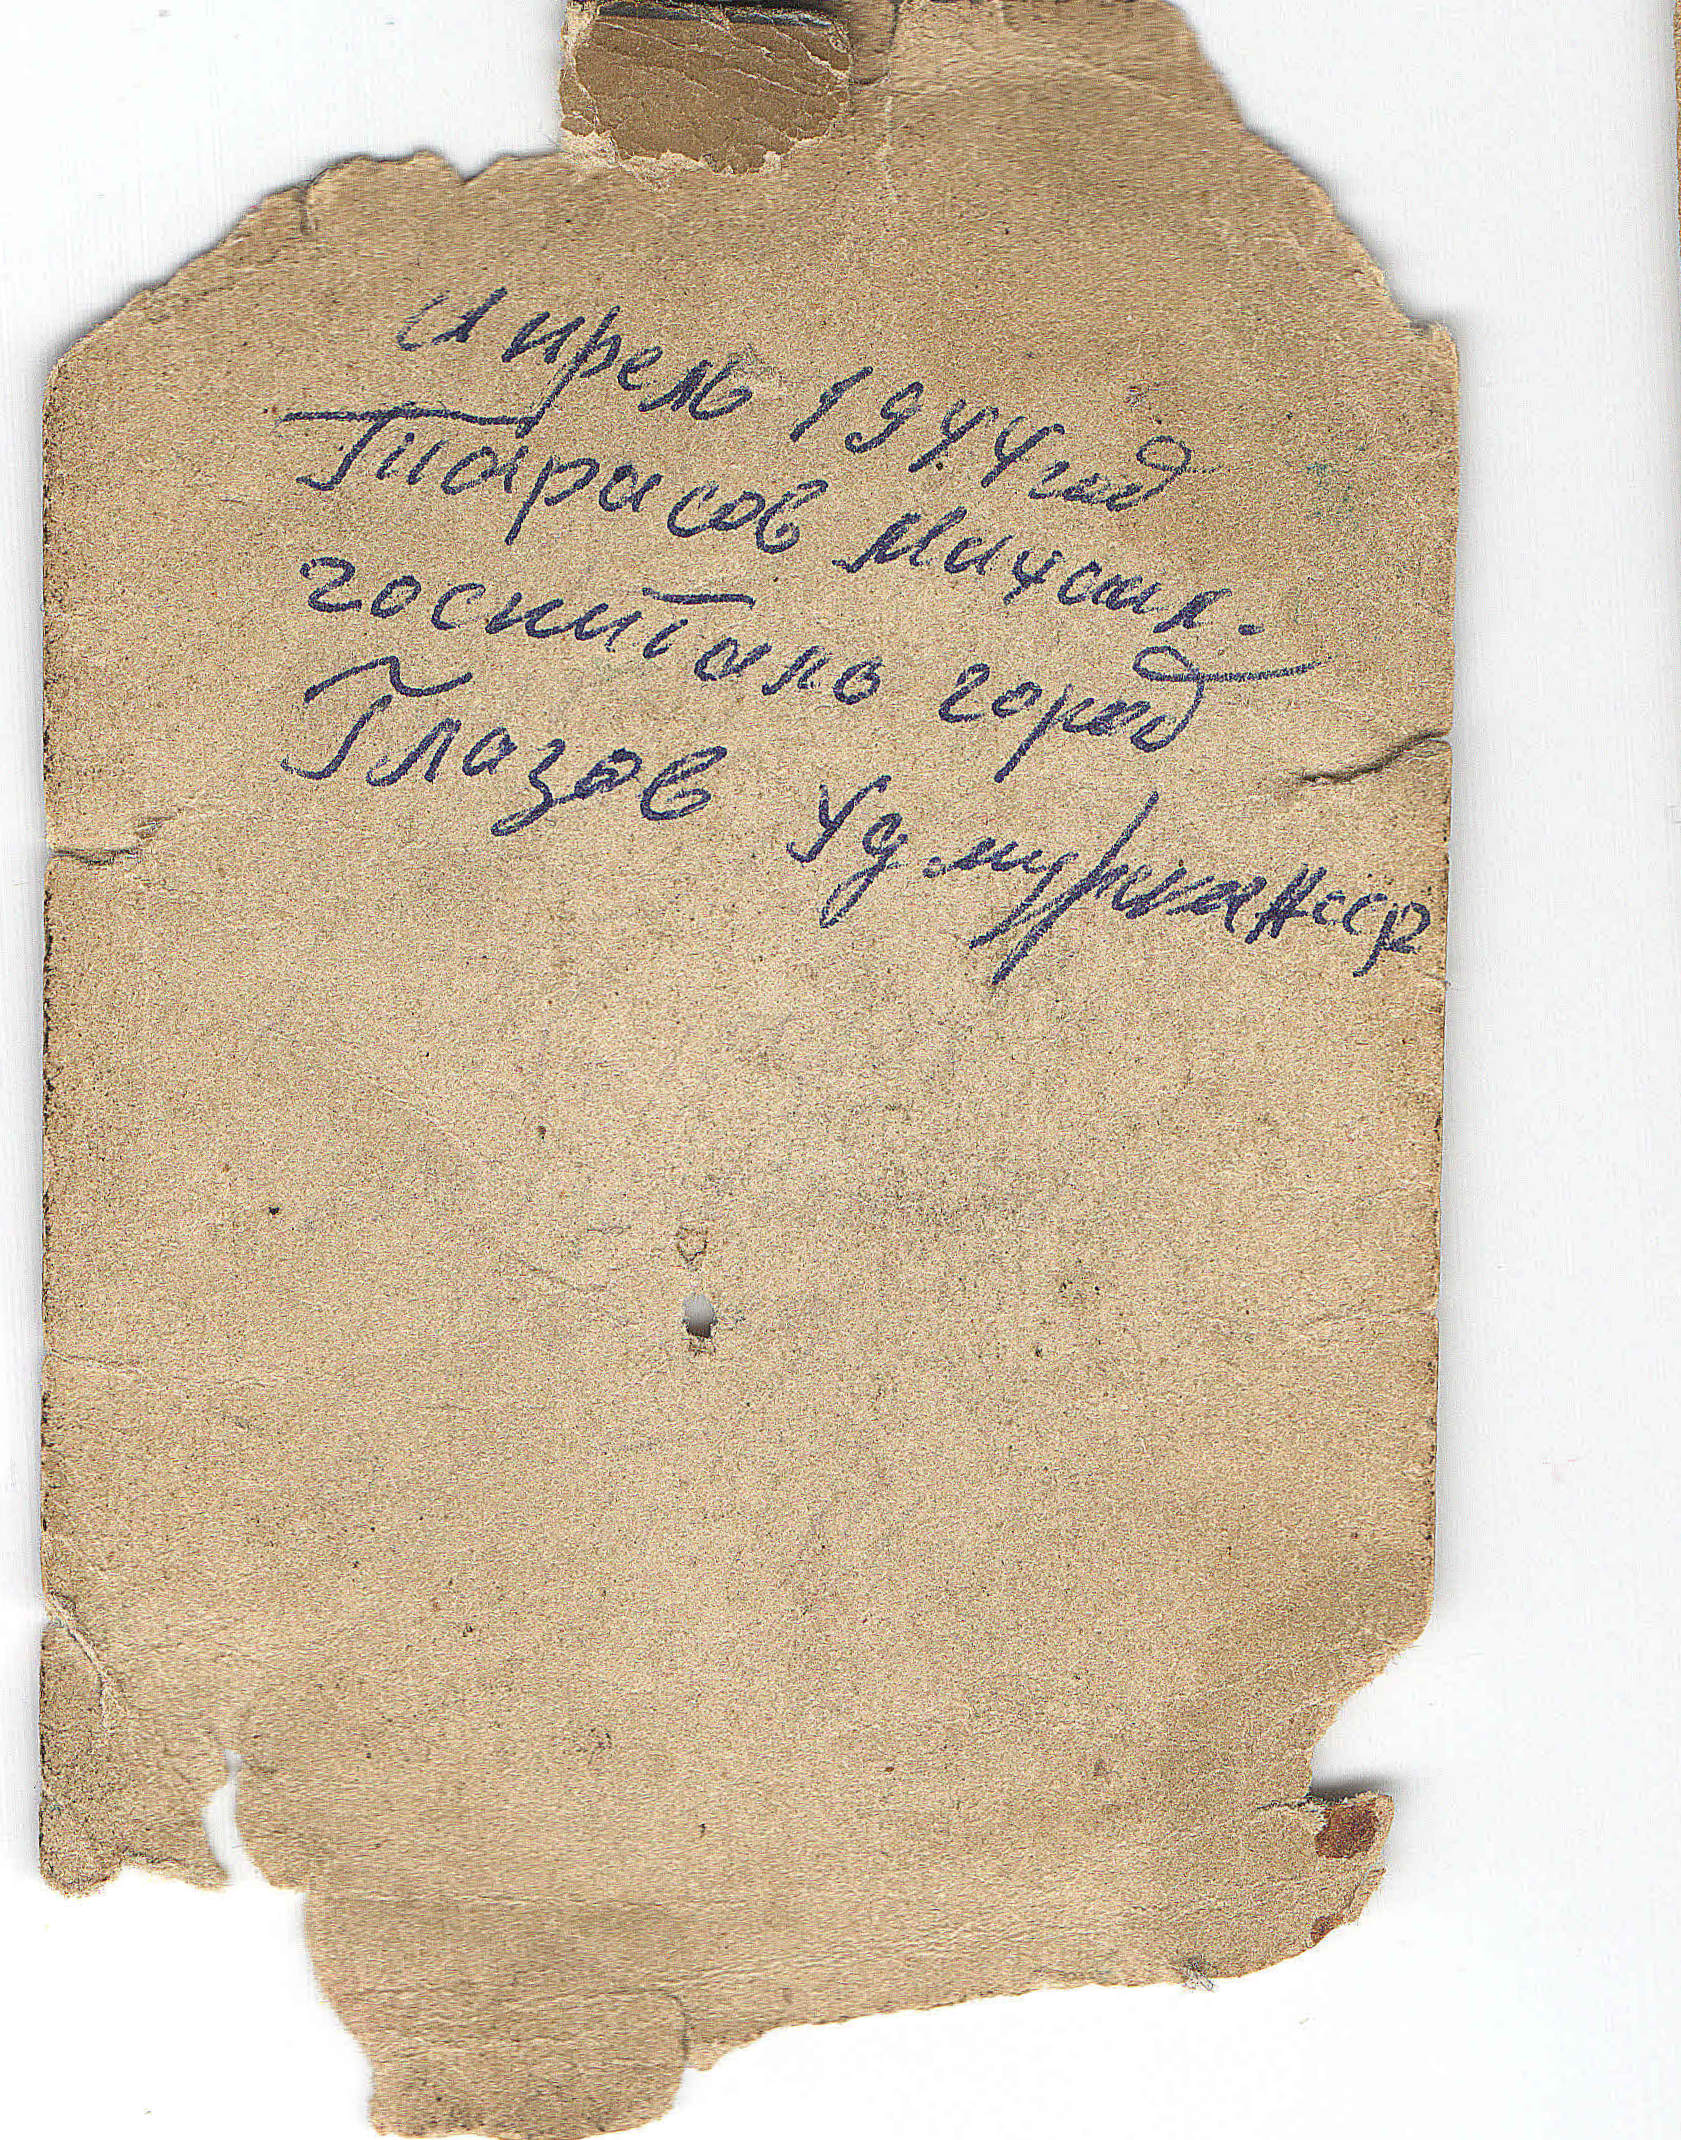 Апрель 1944 год
Тарасов Михаил.
госпиталь город
Глазов Удмуртская АССР